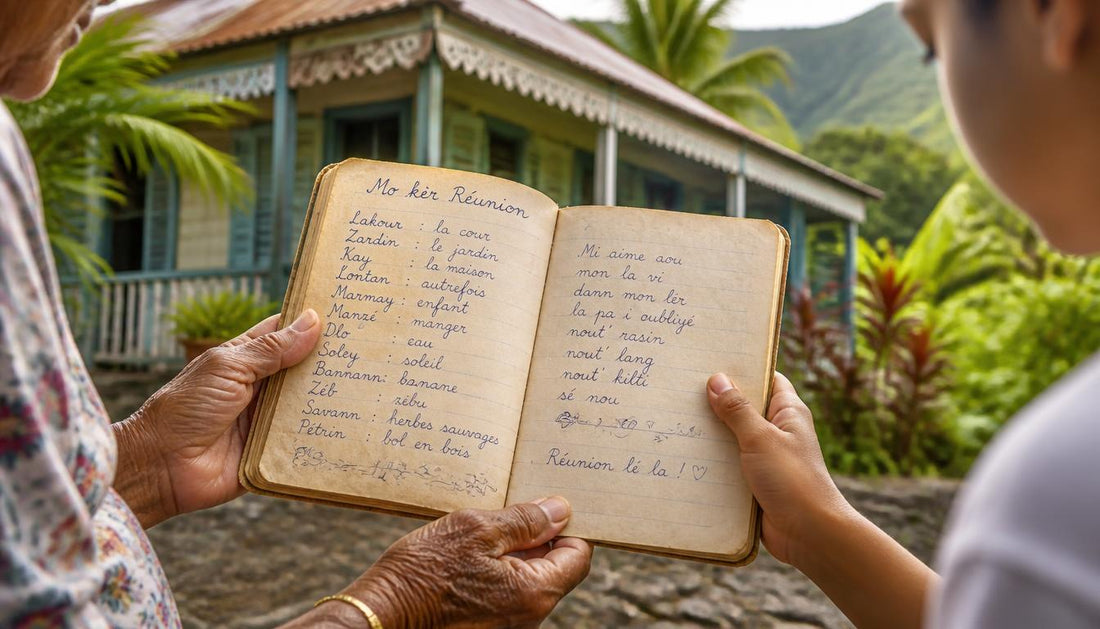 Mo kèr Réunion
Lakour : la cour
Zardin : le jardin
Kay : la maison
Lontan : autrefois
Marmay : enfant
Manzé : manger
Dlo : eau
Soley : soleil
Bannann : banane
Zéb : zébu
Savann : herbes sauvages
Pétrin : bol en bois
Mi aime aou
mon la vi
dann mon lèr
la pa i oubliyé
nout' rasin
nout' lang
nout' kilti
sé nou
Réunion lé la ! ♡